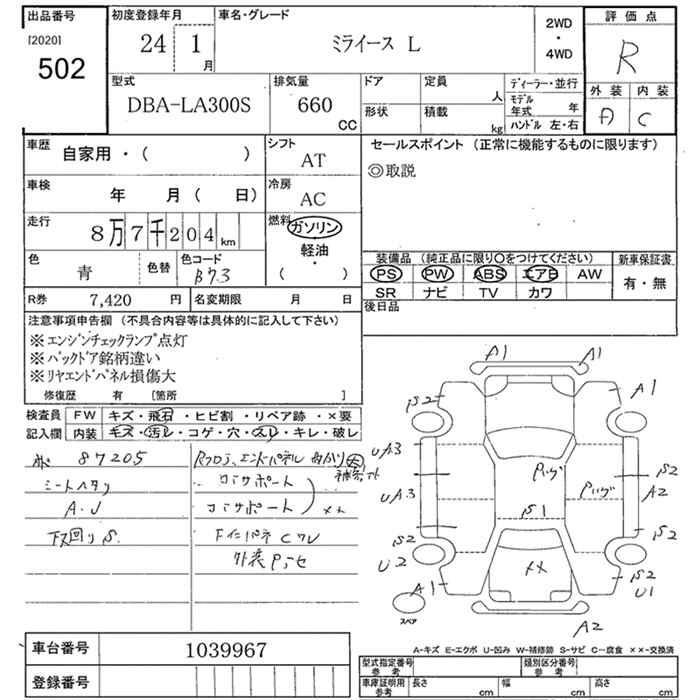 出品番号
[2020]
502
初度登録年月
24 1月
車名・グレード
ミライース L
2WD
・
4WD
評価点
R
外装 内装
A C
型式
DBA-LA300S
排気量
660
CC
ドア
形状
定員
人
積載
kg
ディーラー・並行
モデル年式 年
ハンドル 左・右
車歴
自家用・( )
シフト
AT
車検
年 月( 日)
冷房
AC
走行
8万7千204km
燃料
ガソリン
軽油
・
( )
色
青
色替
色コード
B73
R券 7,420 円
名変期限 月 日
セールスポイント (正常に機能するものに限ります)
◎取説
装備品 (純正品に限り○をつけてください)
PS PW ABS エアB AW
SR ナビ TV カワ
新車保証書
有・無
後日品
注意事項申告欄 (不具合内容等は具体的に記入して下さい)
※エンジンチェックランプ点灯
※バックドア銘柄違い
※リヤエンドパネル損傷大
修復歴 有 [箇所 ]
検査員
記入欄
FW キズ・飛石・ヒビ割・リペア跡・×要
内装 キズ・汚レ・コゲ・穴・スレ・キレ・破レ
87205
シートヘタリ
A・J
下回りS
Rフロア、エンドパネル 曲がり大
コアサポート
コアサポート
××
A1 A1
A1
S2
UA3
UA3
S2
U2
A1
S2
A2
S2
S2
U1
A2
S1
××
スペア
A-キズ E-エクボ U-凹み W-補修跡 S-サビ C-腐食 ××-交換済
車台番号 1039967
登録番号
型式指定番号
参考
類別区分番号
参考
車庫証明用
参考
長さ cm 幅 cm 高さ cm